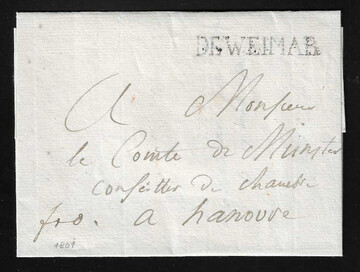 DE WEIMAR
A Monsieur
le Comte de Münster
conseiller de chambre
fro. a hanovre
1801